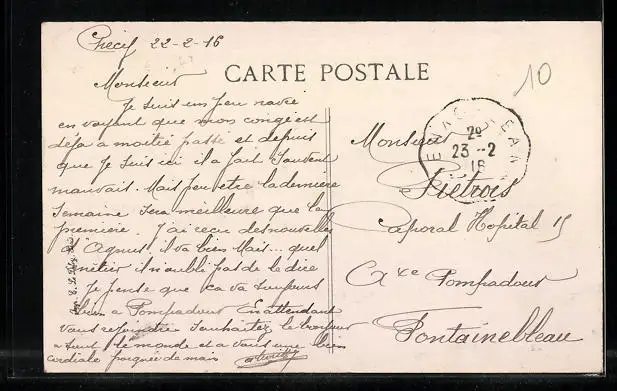 Précy 22-2-16
CARTE POSTALE
10
Monsieur
Je suis un peu navré
en voyant que mon congé est
déja a moitié passé et depuis
que Je suis ici il a fait Souvent
mauvais. Mais peu etre la derniere
Semaine Sera meilleure que la
premiere. J'ai recu des nouvelles
d'Agnus il va bien Mais... quel
métier il n'oublie pas de le dire
Je pense que ca va toujours
bien a Pompadour En attendant
vous rejoindre Souhaitez le bonjour
a tout le monde et a vous une bien
cordiale poignée de main
Monsieur
Pietrois
Caporal Hopital 15
Axe Pompadour
Fontainebleau
23-2
16